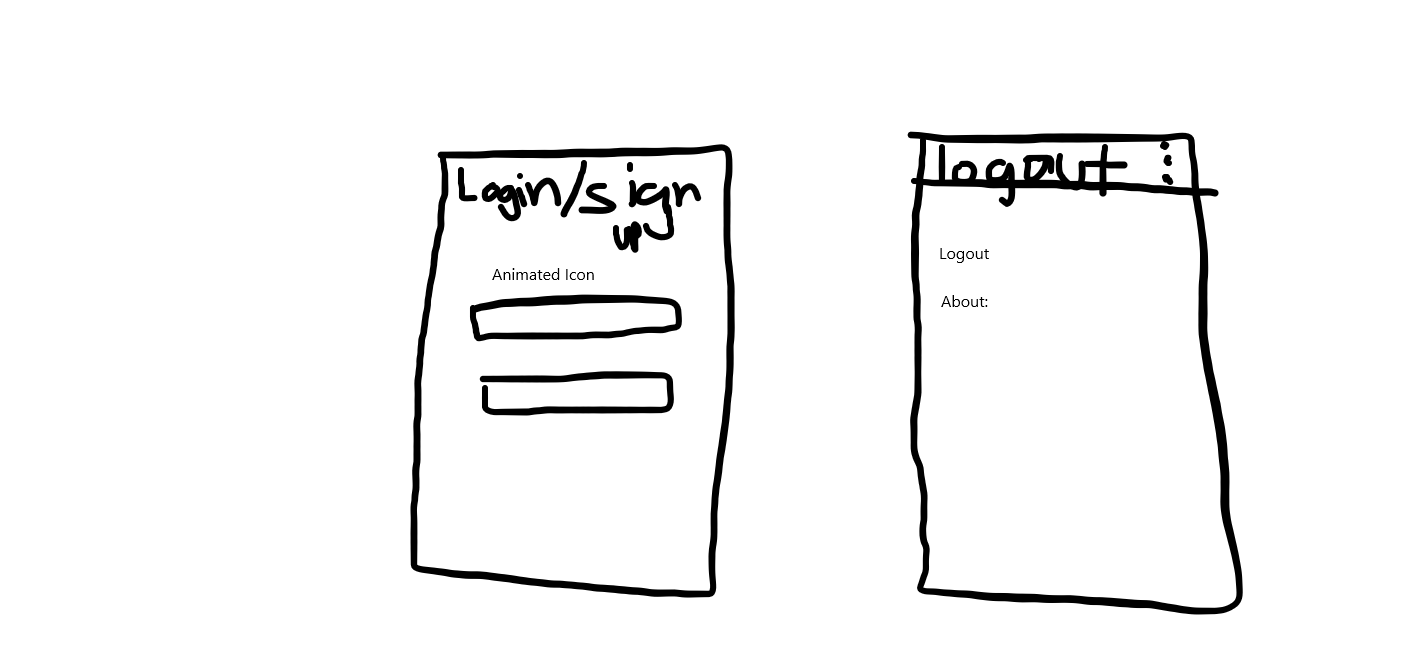 Login/sign
up
Animated Icon
logout
Logout
About: